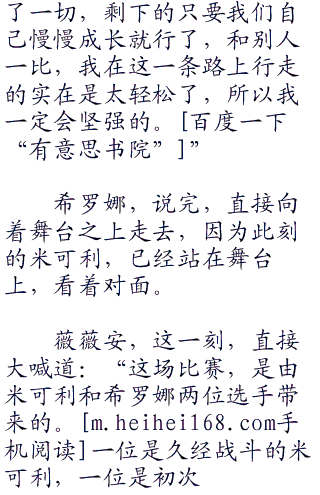 了一切，剩下的只要我们自
己慢慢成长就行了，和别人
一比，我在这一条路上行走
的实在是太轻松了，所以我
一定会坚强的。[百度一下
“有意思书院”]”
希罗娜，说完，直接向
着舞台之上走去，因为此刻
的米可利，已经站在舞台
上，看着对面。
薇薇安，这一刻，直接
大喊道：“这场比赛，是由
米可利和希罗娜两位选手带
来的。[m.heihei168.com手
机阅读]一位是久经战斗的米
可利，一位是初次